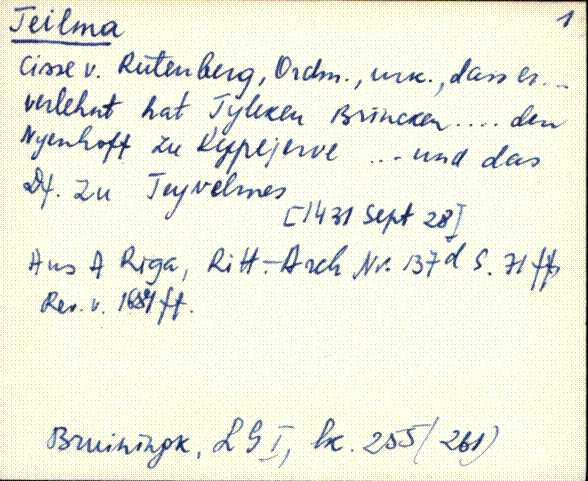 Teilma 1
Cisse v. Rutenberg, Ordm., urk., dass es...
verlehnt hat Tyleken Brincken.... den
Nyenhoff zu Keppejerve ... und das
Df. zu Teyvelmes
[1431 Sept 28]
Aus A Riga, Ritt.-Arch Nr. 137d S. 71 ff
Rev. v. ff.
Bruiningk, LG I, lk. 255 (261)